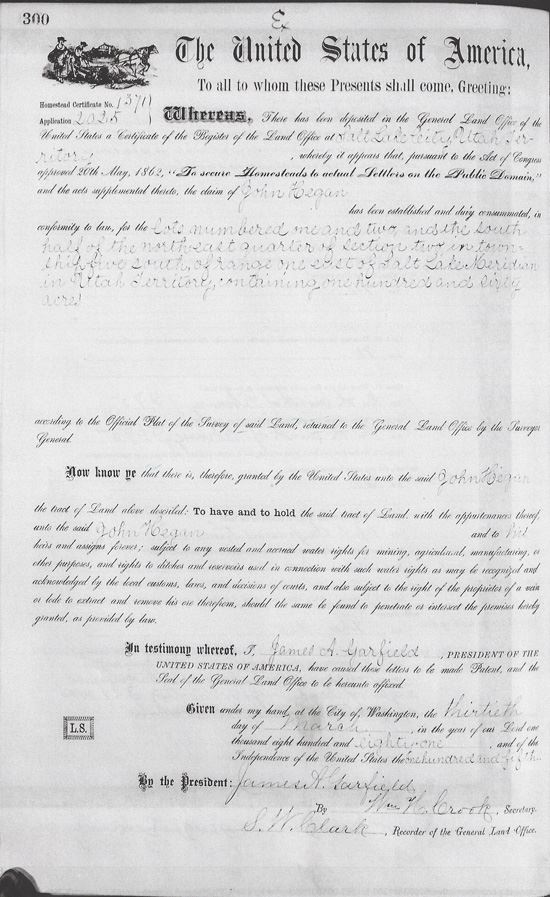 300
The United States of America,
To all to whom these Presents shall come, Greeting:
Homestead Certificate No. 1371
Application 2025
Whereas, There has been deposited in the General Land Office of the
United States a Certificate of the Register of the Land Office at Salt Lake City, Utah Ter-
ritory , whereby it appears that, pursuant to the Act of Congress
approved 20th May, 1862, "To secure Homesteads to actual Settlers on the Public Domain,"
and the acts supplemental thereto, the claim of John Hegan
has been established and duly consummated, in
conformity to law, for the lots numbered one and two and the south
half of the north east quarter of section two in town-
ship five south, of range one east of Salt Lake Meridian
in Utah Territory, containing one hundred and sixty
acres
according to the Official Plat of the Survey of said Land, returned to the General Land Office by the Surveyor
General.
Now know ye that there is, therefore, granted by the United States unto the said John Hegan
the tract of Land above described: To have and to hold the said tract of Land, with the appurtenances thereof,
unto the said John Hegan and to his
heirs and assigns forever; subject to any vested and accrued water rights for mining, agricultural, manufacturing, or
other purposes, and rights to ditches and reservoirs used in connection with such water rights as may be recognized and
acknowledged by the local customs, laws, and decisions of courts, and also subject to the right of the proprietor of a vein
or lode to extract and remove his ore therefrom, should the same be found to penetrate or intersect the premises hereby
granted, as provided by law.
In testimony whereof, I, James A. Garfield , PRESIDENT OF THE
UNITED STATES OF AMERICA, have caused these letters to be made Patent, and the
Seal of the General Land Office to be hereunto affixed.
L.S.
Given under my hand, at the City of Washington, the thirtieth
day of March , in the year of our Lord one
thousand eight hundred and eighty one , and of the
Independence of the United States the one hundred and fifth
By the President: James A. Garfield
By Wm H. Crook, Secretary.
S. W. Clark , Recorder of the General Land Office.